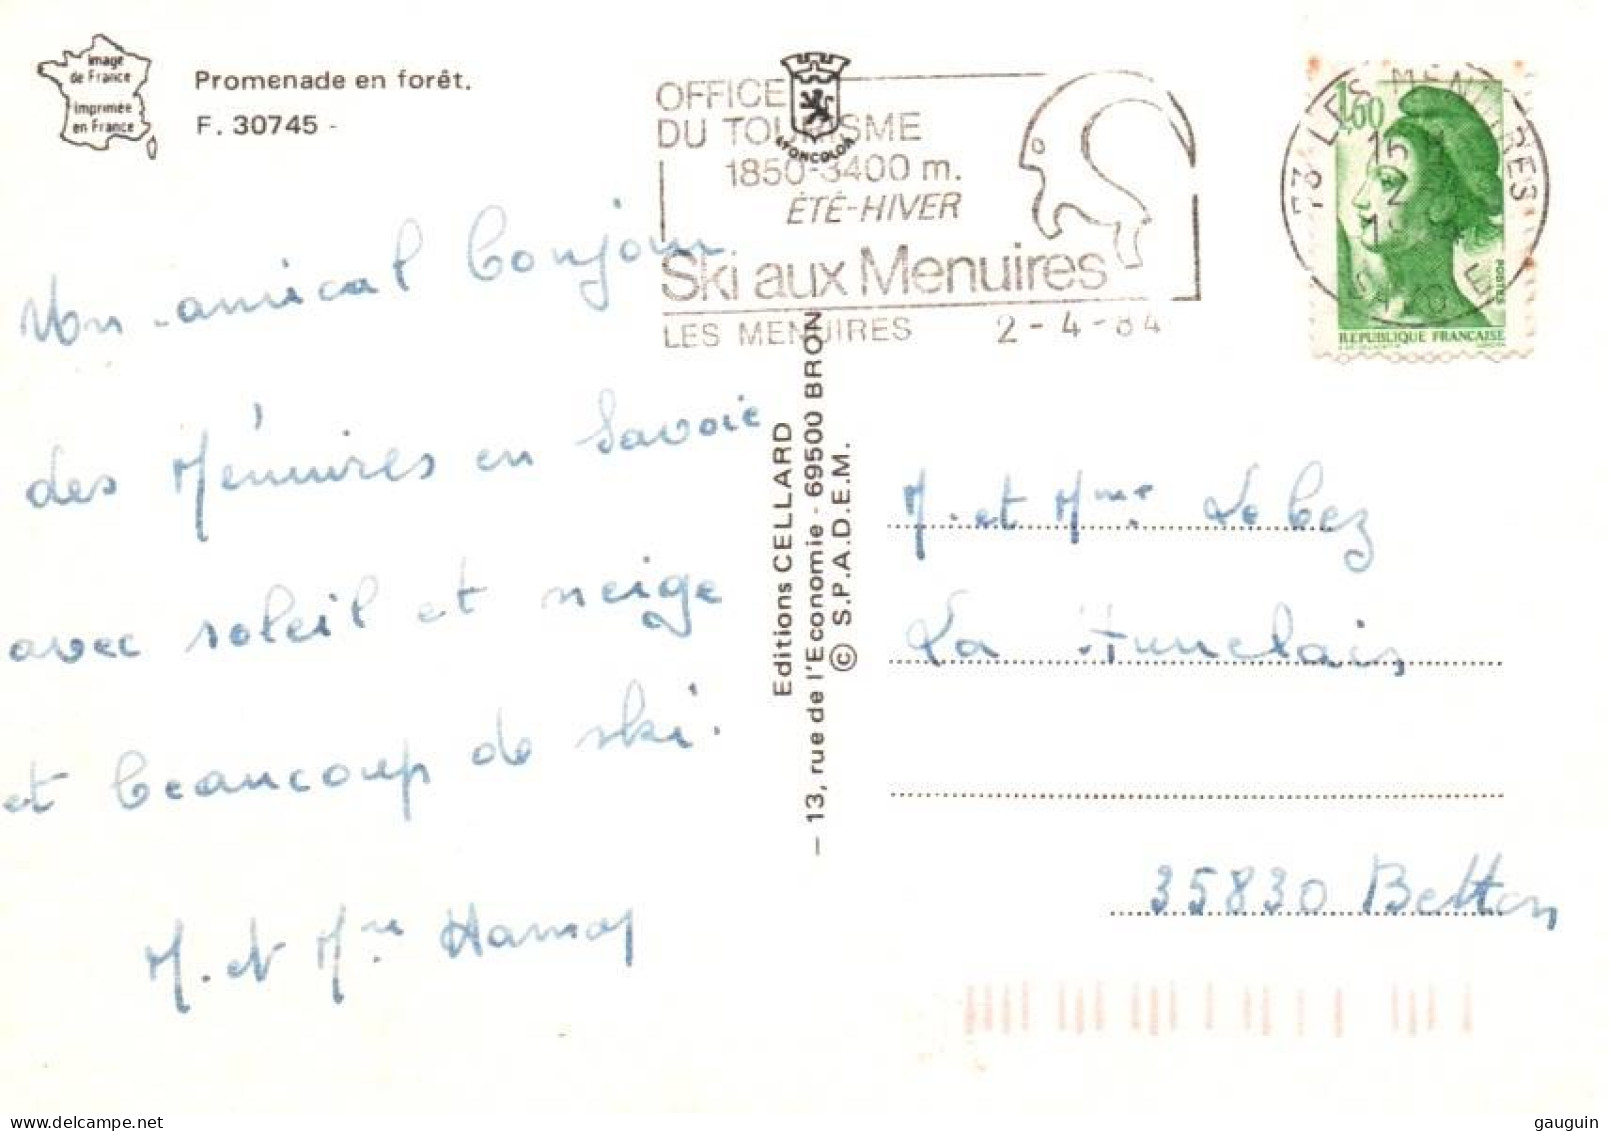 Image
de France
Imprimée
en France
Promenade en forêt.
F. 30745 -
OFFICE
DU TOURISME
1850-3400 m.
ÉTÉ-HIVER
Ski aux Menuires
LES MENUIRES 2-4-84
LYONCOLOR
73 LES MENUIRES
15 H
SAVOIE
1,60
POSTES
REPUBLIQUE FRANÇAISE
Un amical bonjour
des Ménuires en Savoie
avec soleil et neige
et beaucoup de ski.
M. et Mme
Editions CELLARD
— 13, rue de l'Economie - 69500 BRON
© S.P.A.D.E.M.
M. et Mme Lebez
La
35830 Betton
www.delcampe.net
gauguin